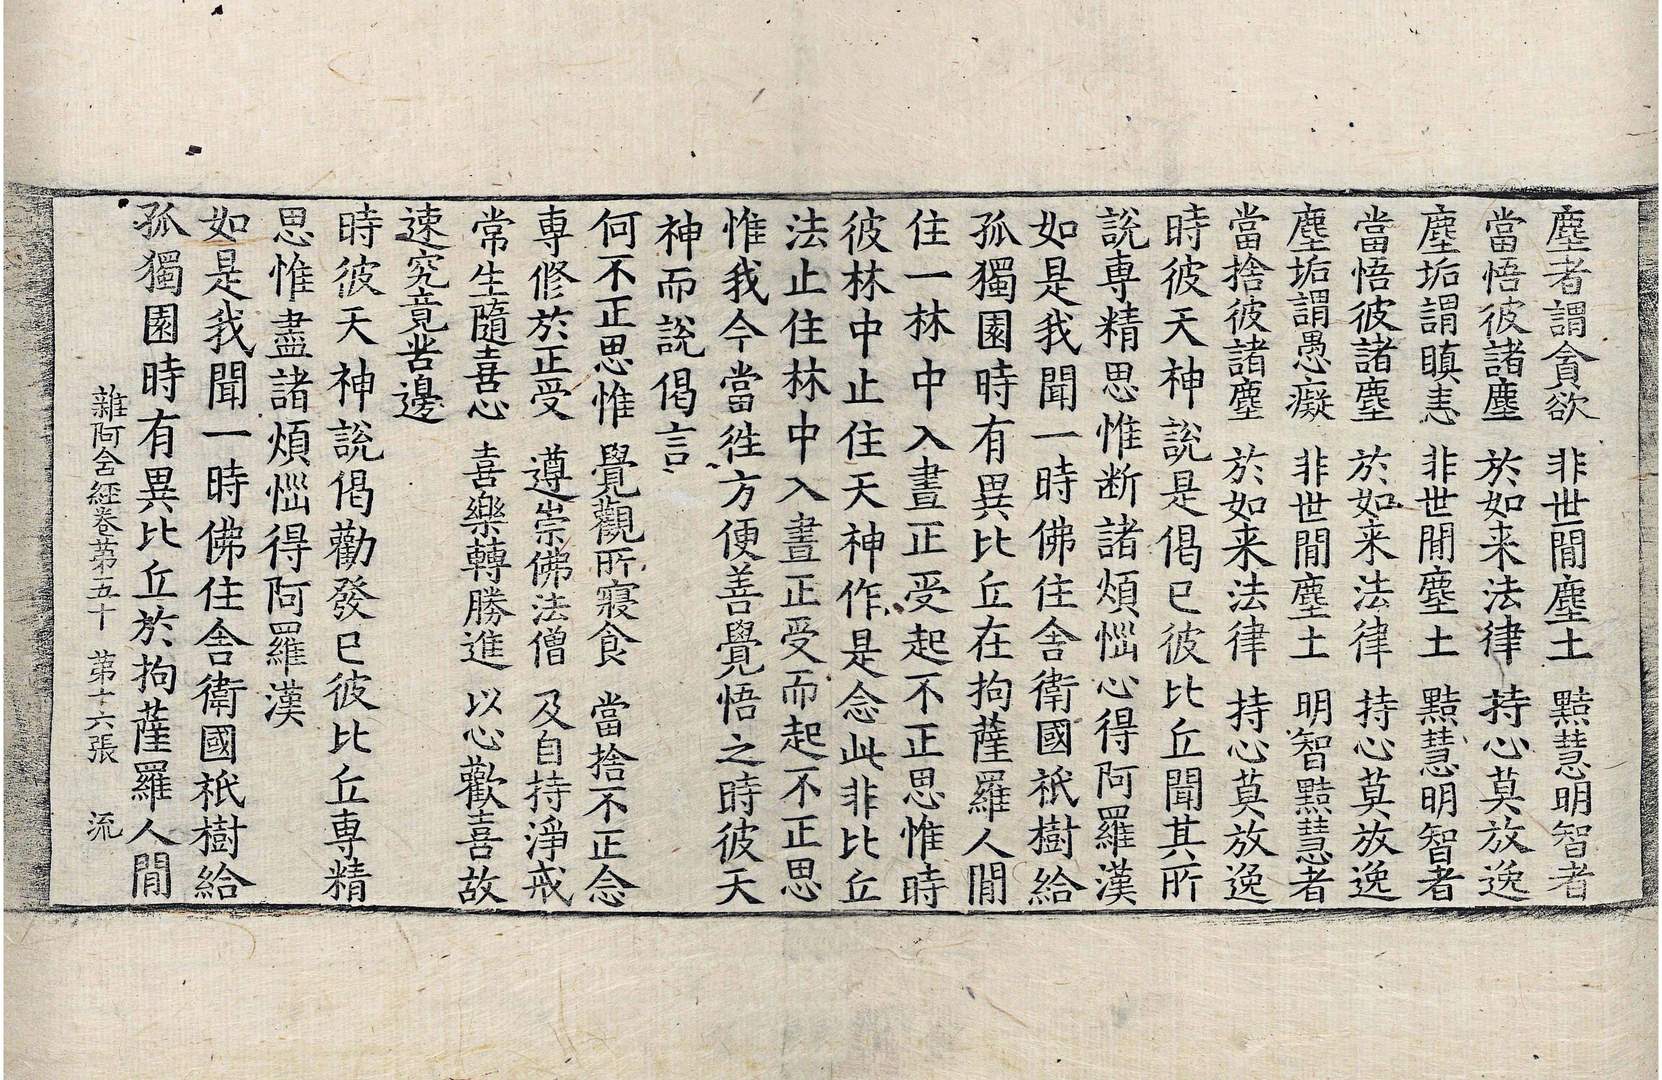 塵者謂貪欲　非世間塵土　黠慧明智者
當悟彼諸塵　於如来法律　持心莫放逸
塵垢謂瞋恚　非世間塵土　黠慧明智者
當悟彼諸塵　於如来法律　持心莫放逸
塵垢謂愚癡　非世間塵土　明智黠慧者
當捨彼諸塵　於如来法律　持心莫放逸
時彼天神說是偈已彼比丘聞其所
說專精思惟断諸煩惱心得阿羅漢
如是我聞一時佛住舍衛國祇樹給
孤獨園時有異比丘在拘薩羅人間
住一林中入晝正受起不正思惟時
彼林中止住天神作是念此非比丘
法止住林中入晝正受而起不正思
惟我今當徃方便善覺悟之時彼天
神而說偈言
何不正思惟　覺觀所寢食　當捨不正念
専修於正受　遵崇佛法僧　及自持淨戒
常生隨喜心　喜樂轉勝進　以心歡喜故
速究竟苦邊
時彼天神說偈勸發已彼比丘専精
思惟盡諸煩惱得阿羅漢
如是我聞一時佛住舍衛國祇樹給
孤獨園時有異比丘於拘薩羅人間
雜阿含經卷第五十　第十六張　流